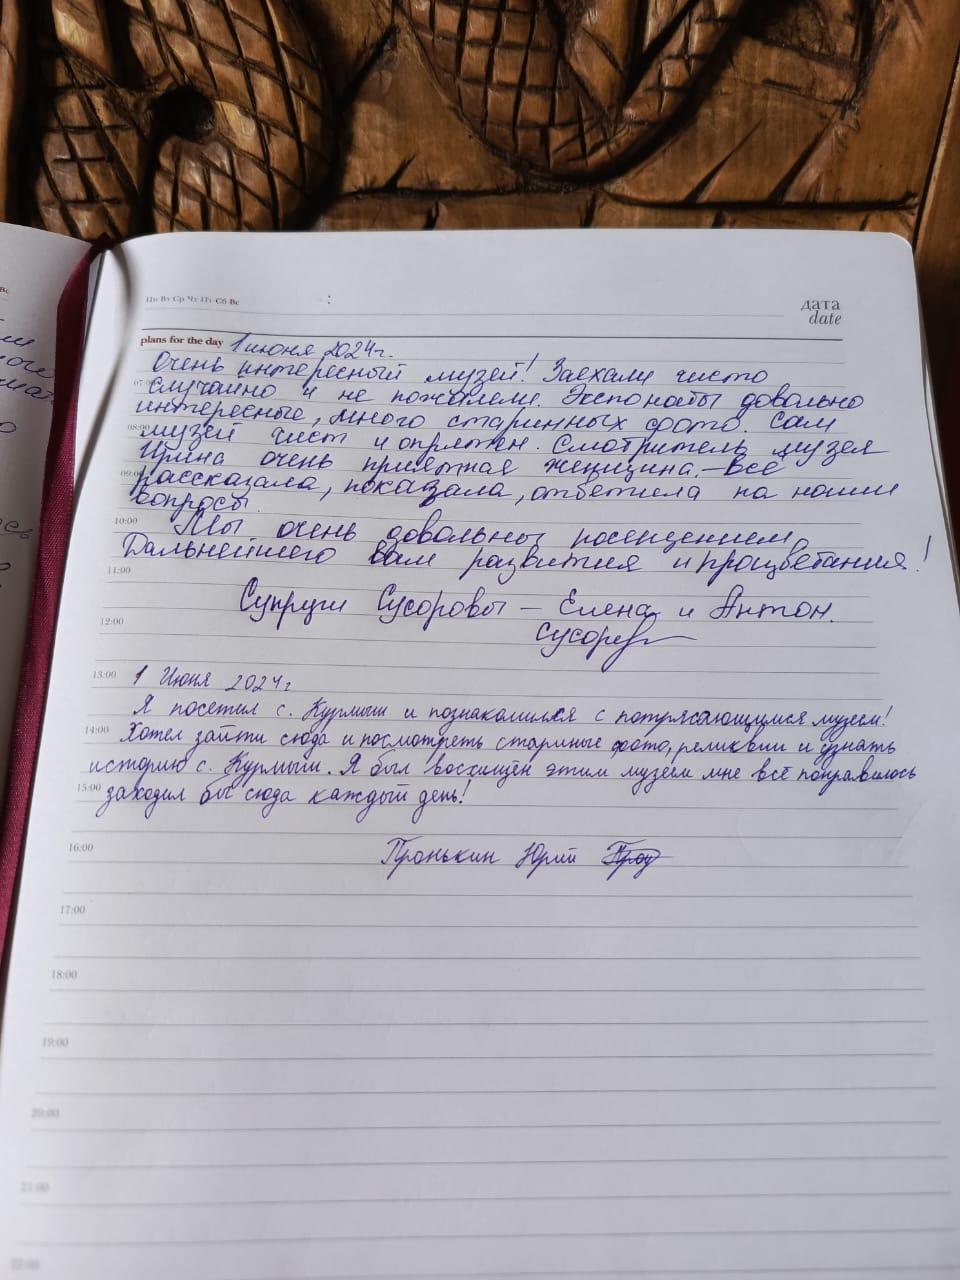 Пн Вт Ср Чт Пт Сб Вс
дата
date
plans for the day 1 июня 2024г.
Очень интересный музей! Заехали чисто
07:00 случайно и не пожалели. Экспонаты довольно
интересные, много старинных фото. Сам
08:00 музей чист и опрятен. Смотритель музея
Ирина очень приятная женщина, – всё
09:00 рассказала, показала, ответила на наши
вопросы.
10:00 Мы очень довольны посещением.
Дальнейшего Вам развития и процветания!
11:00
Супруги Сусоровы – Елена и Антон.
12:00
13:00 1 Июня 2024г
Я посетил с. Курмыш и познакомился с потрясающимся музеем!
14:00 Хотел зайти сюда и посмотреть стариные фото, реликвии и узнать
историю с. Курмыш. Я был восхищён этим музеем мне всё понравилось
15:00 заходил бы сюда каждый день!
16:00 Пронькин Юрий
17:00
18:00
19:00
20:00
21:00
22:00